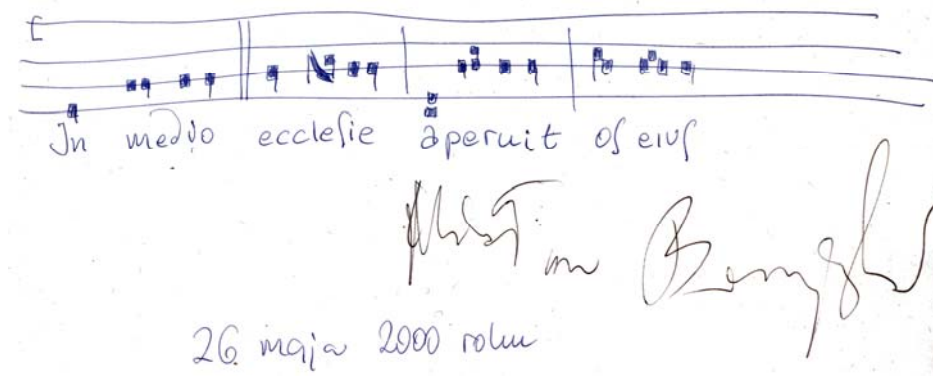 In medio ecclesie aperuit os eius
26 maja 2000 roku